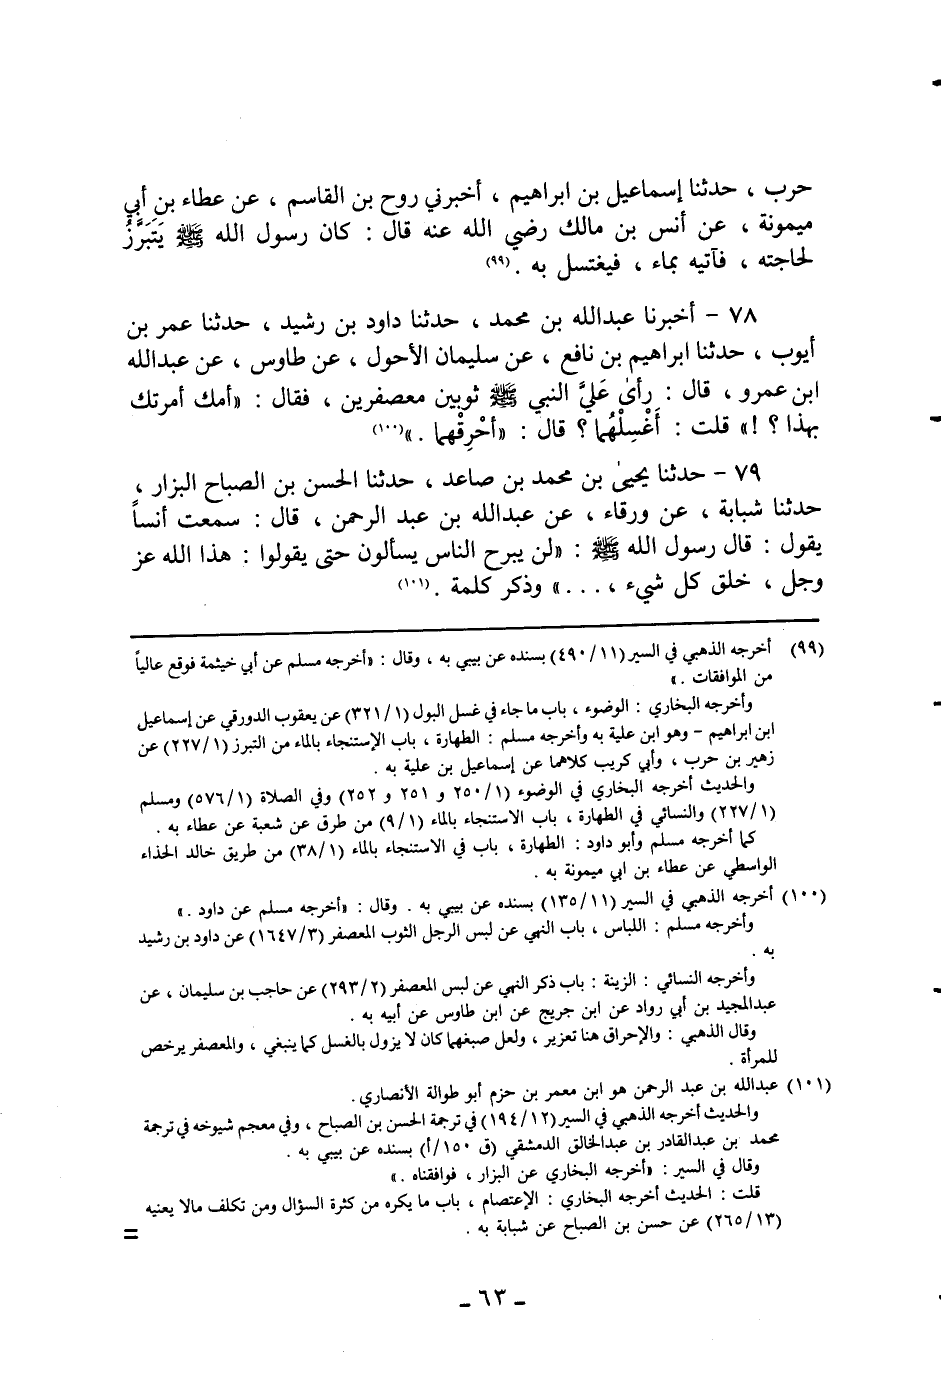 حرب ، حدثنا إسماعيل بن ابراهيم ، أخبرني روح بن القاسم ، عن عطاء بن أبي
ميمونة ، عن أنس بن مالك رضي الله عنه قال : كان رسول الله ﷺ يَتَبَرَّزُ
لحاجته ، فآتيه بماء ، فيغتسل به .(٩٩)
٧٨ – أخبرنا عبدالله بن محمد ، حدثنا داود بن رشيد ، حدثنا عمر بن
أيوب ، حدثنا ابراهيم بن نافع ، عن سليمان الأحول ، عن طاوس ، عن عبدالله
ابن عمرو ، قال : رأىٰ عَلَيَّ النبي ﷺ ثوبين معصفرين ، فقال : «أمك أمرتك
بهذا ؟ !» قلت : أَغْسِلْهُما ؟ قال : «أحْرِقْهما .»(١٠٠)
٧٩ – حدثنا يحيىٰ بن محمد بن صاعد ، حدثنا الحسن بن الصباح البزار ،
حدثنا شبابة ، عن ورقاء ، عن عبدالله بن عبد الرحمن ، قال : سمعت أنساً
يقول : قال رسول الله ﷺ : «لن يبرح الناس يسألون حتى يقولوا : هذا الله عز
وجل ، خلق كل شيء ، ...» وذكر كلمة .(١٠١)
(٩٩) أخرجه الذهبي في السير (٤٩٠/١١) بسنده عن بيبي به ، وقال : «أخرجه مسلم عن أبي خيثمة فوقع عالياً
من الموافقات .»
وأخرجه البخاري : الوضوء ، باب ما جاء في غسل البول (٣٢١/١) عن يعقوب الدورقي عن إسماعيل
ابن ابراهيم – وهو ابن علية به وأخرجه مسلم : الطهارة ، باب الإستنجاء بالماء من التبرز (٢٢٧/١) عن
زهير بن حرب ، وأبي كريب كلاهما عن إسماعيل بن علية به .
والحديث أخرجه البخاري في الوضوء (٢٥٠/١ و ٢٥١ و ٢٥٢) وفي الصلاة (٥٧٦/١) ومسلم
(٢٢٧/١) والنسائي في الطهارة ، باب الاستنجاء بالماء (٩/١) من طرق عن شعبة عن عطاء به .
كما أخرجه مسلم وأبو داود : الطهارة ، باب في الاستنجاء بالماء (٣٨/١) من طريق خالد الحذاء
الواسطي عن عطاء بن ابي ميمونة به .
(١٠٠) أخرجه الذهبي في السير (١٣٥/١١) بسنده عن بيبي به . وقال : «أخرجه مسلم عن داود .»
وأخرجه مسلم : اللباس ، باب النهي عن لبس الرجل الثوب المعصفر (١٦٤٧/٣) عن داود بن رشيد
به .
وأخرجه النسائي : الزينة : باب ذكر النهي عن لبس المعصفر (٢٩٣/٢) عن حاجب بن سليمان ، عن
عبدالمجيد بن أبي رواد عن ابن جريج عن ابن طاوس عن أبيه به .
وقال الذهبي : والإحراق هنا تعزير ، ولعل صبغهما كان لا يزول بالغسل كما ينبغي ، والمعصفر يرخص
للمرأة .
(١٠١) عبدالله بن عبد الرحمن هو ابن معمر بن حزم أبو طوالة الأنصاري .
والحديث أخرجه الذهبي في السير (١٩٤/١٢) في ترجمة الحسن بن الصباح ، وفي معجم شيوخه في ترجمة
محمد بن عبدالقادر بن عبدالخالق الدمشقي (ق ١٥٠/أ) بسنده عن بيبي به .
وقال في السير : «أخرجه البخاري عن البزار ، فوافقناه .»
قلت : الحديث أخرجه البخاري : الإعتصام ، باب ما يكره من كثرة السؤال ومن تكلف مالا يعنيه
(٢٦٥/١٣) عن حسن بن الصباح عن شبابة به .
=
– ٦٣ –